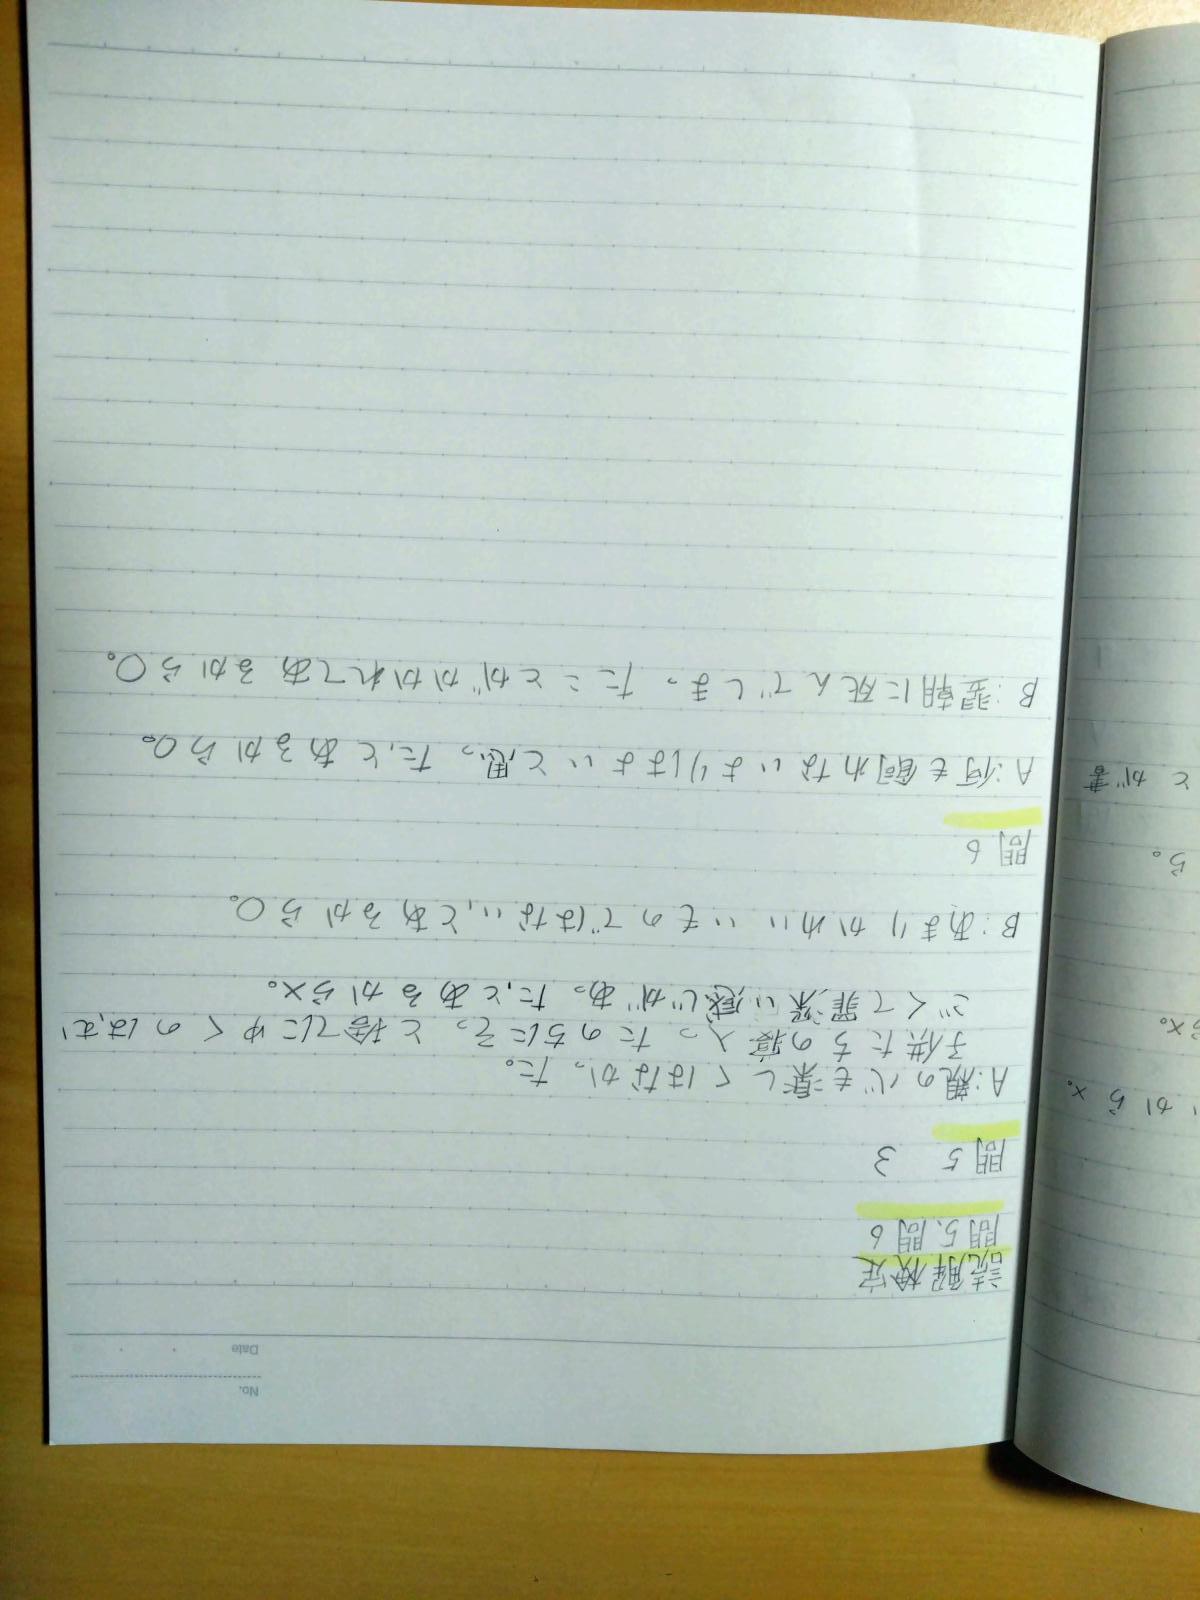 No.
Date
読解検定
問5、問6
問5 3
A:親の心も楽しくはなかった。
子供たちの寝入ったのちにそっと捨てにゆくのはむ
ごくて罪深い感じがあった、とあるから×。
B:あまりかわいいものではない、とあるから○。
問6
A:何も飼わないよりはよいと思った、とあるから○。
B:翌朝に死んでしまったことがかかれてあるから○。
とが書
ら。
ら×。
いから×。